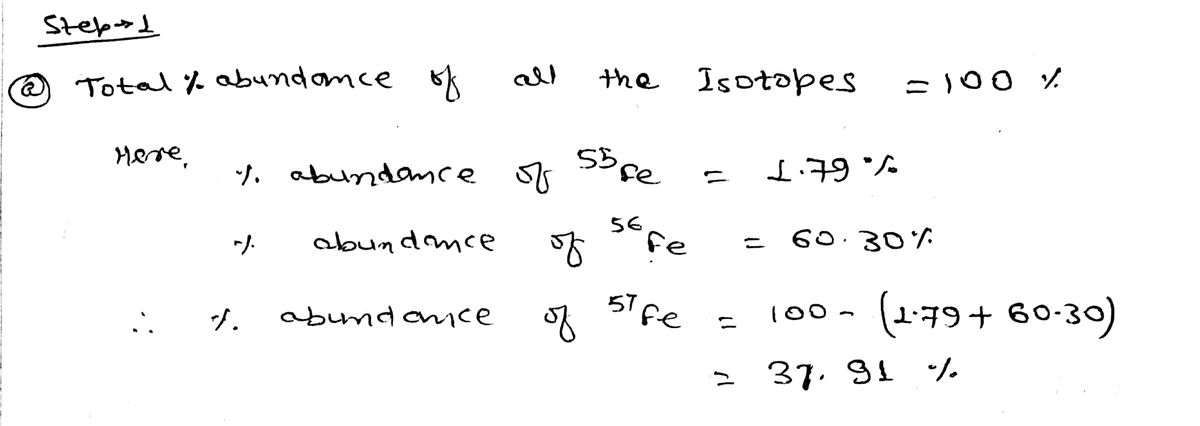 Step→1
ⓐ Total % abundance of all the Isotopes = 100 %
Here, % abundance of ⁵⁵Fe = 1.79 %
% abundance of ⁵⁶Fe = 60.30%
∴ % abundance of ⁵⁷Fe = 100 - (1.79 + 60.30)
= 37.91 %